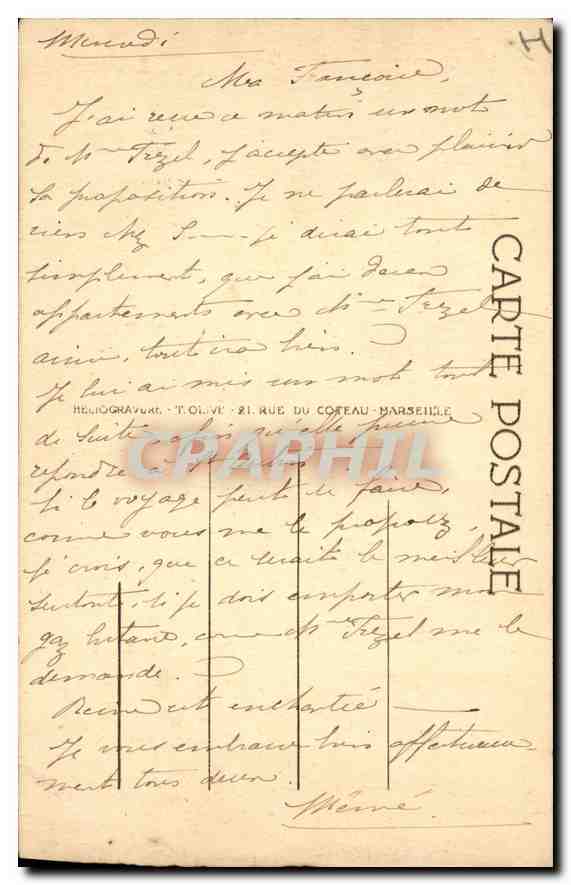 Mercredi
Ma Françoise,
J'ai reçu ce matin un mot
de Mme Trézel, j'accepte avec plaisir
sa proposition. Je ne parlerai de
rien chez S---- je dirai tout
simplement, que j'ai deux
appartements avec Mme Trézel
ainsi, tout ira bien.
Je lui ai mis un mot tout
HELIOGRAVURE - T. OLIVE - 21, RUE DU COTEAU - MARSEILLE
de suite, afin qu'elle puisse
repondre
Si le voyage peut se faire,
comme vous me le proposez,
je crois, que ce serait le meilleur
surtout, si je dois emporter mon
gaz butane, comme Mme Trézel me le
demande.
Reine est enchantée
Je vous embrasse bien affectueuse-
ment tous deux.
Mémé
CARTE POSTALE
CPAPHIL